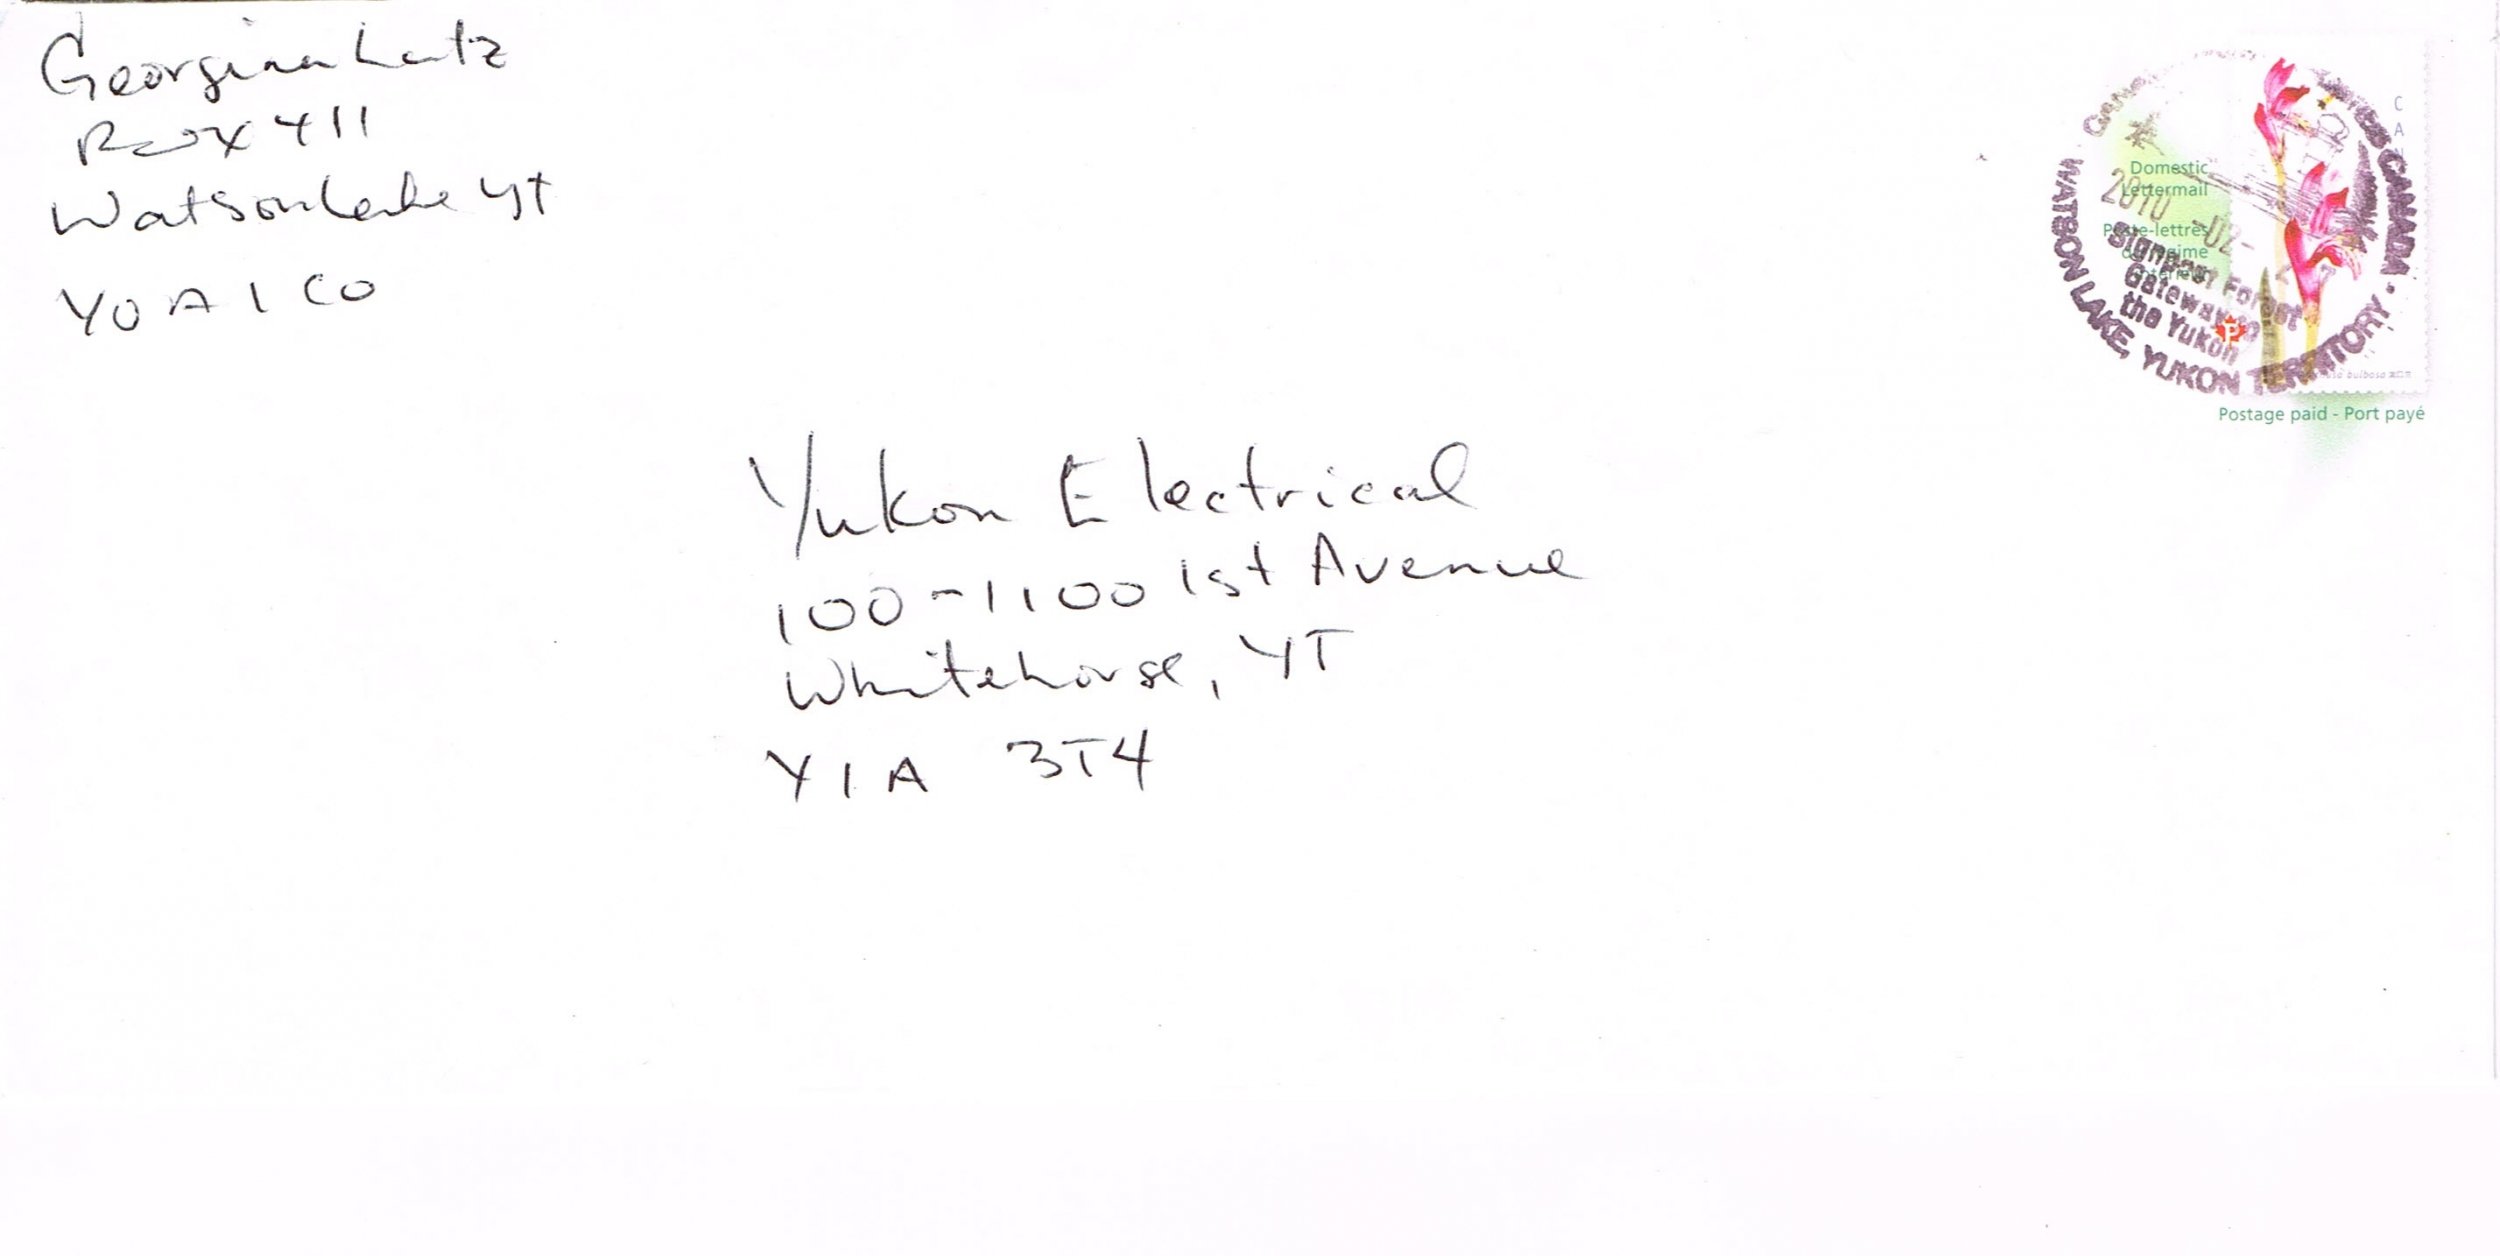 Georgina Lutz
Box 411
Watson Lake YT
Y0A 1C0
Domestic
Lettermail
Poste-lettres
du régime
intérieur
CANADA
WATSON LAKE, YUKON TERRITORY
2010 -02-
Signpost Forest
Gateway to
the Yukon
P
Postage paid - Port payé
Yukon Electrical
100-1100 1st Avenue
Whitehorse, YT
Y1A 3T4